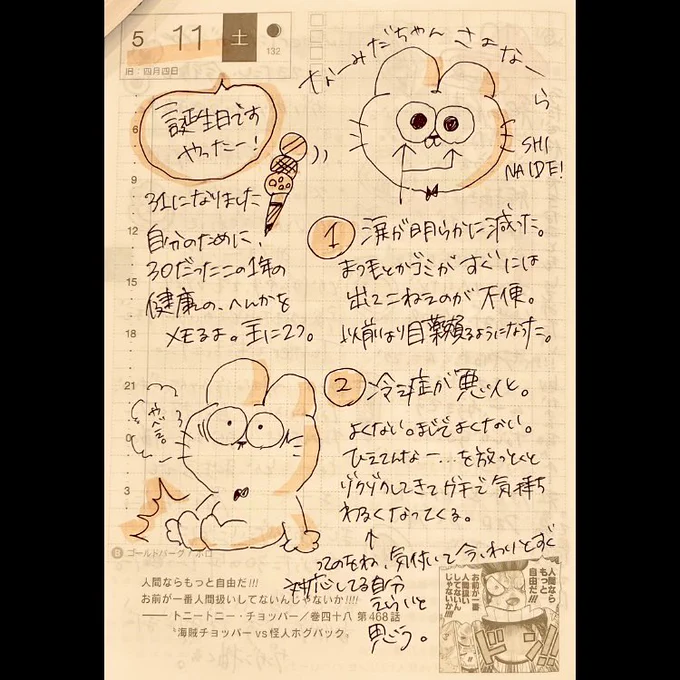 5 11 土
132
旧:四月四日
なーみだちゃん さよなーら
SHI
NAIDE!
誕生日です
やったー!
31になりました
自分のために、
30だったこの1年の
健康の、へんかを
メモるよ。主に2つ。
① 涙が明らかに減った。
まつ毛とかゴミがすぐには
出てこねぇのが不便。
以前より目薬頼るようになった。
② 冷え症が悪いと。
よくない。まじでよくない。
ひえてんなー…を放っとくと
ゾクゾクしてきてガチで気持ち
わるくなってくる。
↑
ってのをね、気付いて今、わりとすぐ
対応してる自分
えらいと
思う。
やべぇ。
6
9
12
15
18
21
0
3
人間ならもっと自由だ!!!
お前が一番人間扱いしてないんじゃないか!!!!
――トニートニー・チョッパー/巻四十八 第468話
“海賊チョッパー vs 怪人ホグバック”
人間なら
もっと
自由だ!!!
お前が一番
人間扱い
してないん
じゃないか!!!!
ドン!!